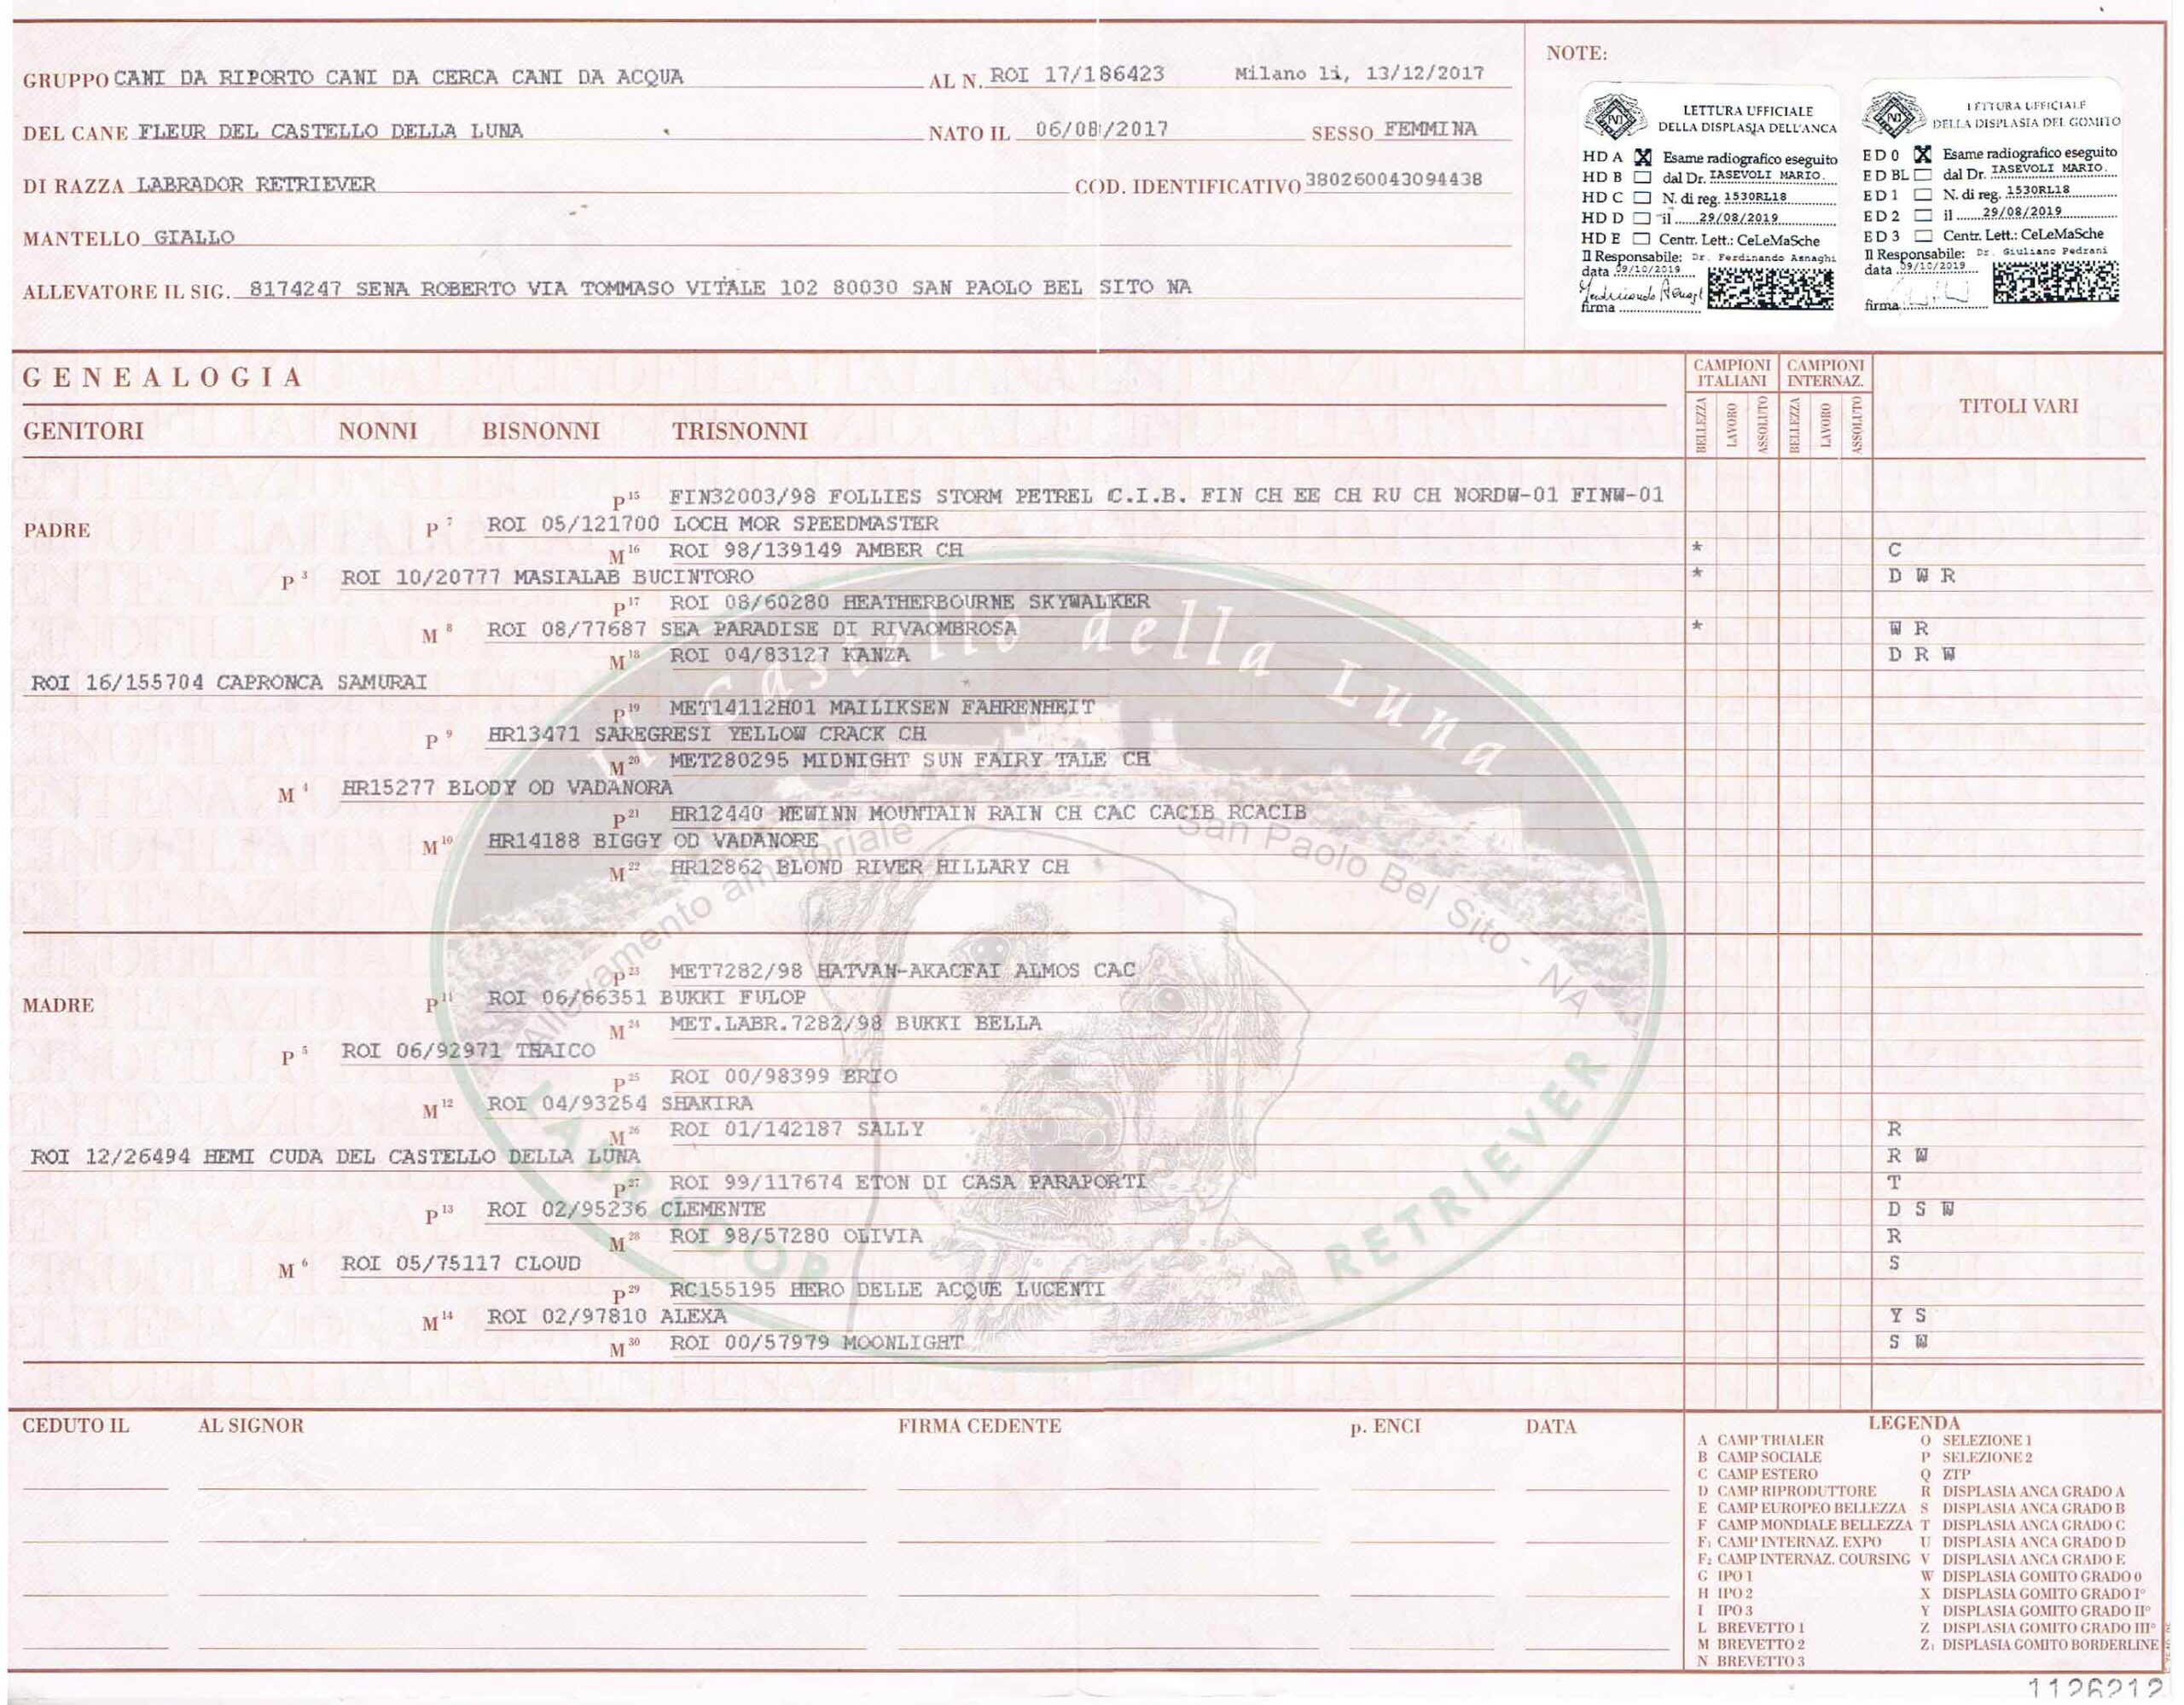 GRUPPO CANI DA RIPORTO CANI DA CERCA CANI DA ACQUA AL N. ROI 17/186423 Milano li, 13/12/2017
DEL CANE FLEUR DEL CASTELLO DELLA LUNA NATO IL 06/08/2017 SESSO FEMMINA
DI RAZZA LABRADOR RETRIEVER COD. IDENTIFICATIVO 380260043094438
MANTELLO GIALLO
ALLEVATORE IL SIG. 8174247 SENA ROBERTO VIA TOMMASO VITALE 102 80030 SAN PAOLO BEL SITO NA
NOTE:
LETTURA UFFICIALE
DELLA DISPLASIA DELL'ANCA
HD A X Esame radiografico eseguito
HD B dal Dr. IASEVOLI MARIO.
HD C N. di reg. 1530RL18
HD D il 29/08/2019
HD E Centr. Lett.: CeLeMaSche
Il Responsabile: Dr. Ferdinando Asnaghi
data 09/10/2019
firma
LETTURA UFFICIALE
DELLA DISPLASIA DEL GOMITO
ED 0 X Esame radiografico eseguito
ED BL dal Dr. IASEVOLI MARIO.
ED 1 N. di reg. 1530RL18
ED 2 il 29/08/2019
ED 3 Centr. Lett.: CeLeMaSche
Il Responsabile: Dr. Giuliano Pedrani
data 09/10/2019
firma
GENEALOGIA
CAMPIONI ITALIANI
CAMPIONI INTERNAZ.
BELLEZZA LAVORO ASSOLUTO BELLEZZA LAVORO ASSOLUTO
TITOLI VARI
GENITORI NONNI BISNONNI TRISNONNI
P 15 FIN32003/98 FOLLIES STORM PETREL C.I.B. FIN CH EE CH RU CH NORDW-01 FINW-01
PADRE P 7 ROI 05/121700 LOCH MOR SPEEDMASTER
M 16 ROI 98/139149 AMBER CH * C
P 3 ROI 10/20777 MASIALAB BUCINTORO * D W R
P 17 ROI 08/60280 HEATHERBOURNE SKYWALKER
M 8 ROI 08/77687 SEA PARADISE DI RIVAOMBROSA * W R
M 18 ROI 04/83127 KANZA D R W
ROI 16/155704 CAPRONCA SAMURAI
P 19 MET14112H01 MAILIKSEN FAHRENHEIT
P 9 HR13471 SAREGRESI YELLOW CRACK CH
M 20 MET280295 MIDNIGHT SUN FAIRY TALE CH
M 4 HR15277 BLODY OD VADANORA
P 21 HR12440 NEWINN MOUNTAIN RAIN CH CAC CACIB RCACIB
M 10 HR14188 BIGGY OD VADANORE
M 22 HR12862 BLOND RIVER HILLARY CH
P 23 MET7282/98 HATVAN-AKACFAI ALMOS CAC
MADRE P 11 ROI 06/66351 BUKKI FULOP
M 24 MET.LABR.7282/98 BUKKI BELLA
P 5 ROI 06/92971 THAICO
P 25 ROI 00/98399 BRIO
M 12 ROI 04/93254 SHAKIRA
M 26 ROI 01/142187 SALLY R
ROI 12/26494 HEMI CUDA DEL CASTELLO DELLA LUNA R W
P 27 ROI 99/117674 ETON DI CASA PARAPORTI T
P 13 ROI 02/95236 CLEMENTE D S W
M 28 ROI 98/57280 OLIVIA R
M 6 ROI 05/75117 CLOUD S
P 29 RC155195 HERO DELLE ACQUE LUCENTI
M 14 ROI 02/97810 ALEXA Y S
M 30 ROI 00/57979 MOONLIGHT S W
Il Castello della Luna
Allevamento amatoriale San Paolo Bel Sito - NA
LABRADOR RETRIEVER
CEDUTO IL AL SIGNOR FIRMA CEDENTE p. ENCI DATA
LEGENDA
A CAMP TRIALER O SELEZIONE 1
B CAMP SOCIALE P SELEZIONE 2
C CAMP ESTERO Q ZTP
D CAMP RIPRODUTTORE R DISPLASIA ANCA GRADO A
E CAMP EUROPEO BELLEZZA S DISPLASIA ANCA GRADO B
F CAMP MONDIALE BELLEZZA T DISPLASIA ANCA GRADO C
F1 CAMP INTERNAZ. EXPO U DISPLASIA ANCA GRADO D
F2 CAMP INTERNAZ. COURSING V DISPLASIA ANCA GRADO E
G IPO 1 W DISPLASIA GOMITO GRADO 0
H IPO 2 X DISPLASIA GOMITO GRADO I°
I IPO 3 Y DISPLASIA GOMITO GRADO II°
L BREVETTO 1 Z DISPLASIA GOMITO GRADO III°
M BREVETTO 2 Z1 DISPLASIA GOMITO BORDERLINE
N BREVETTO 3
1126212